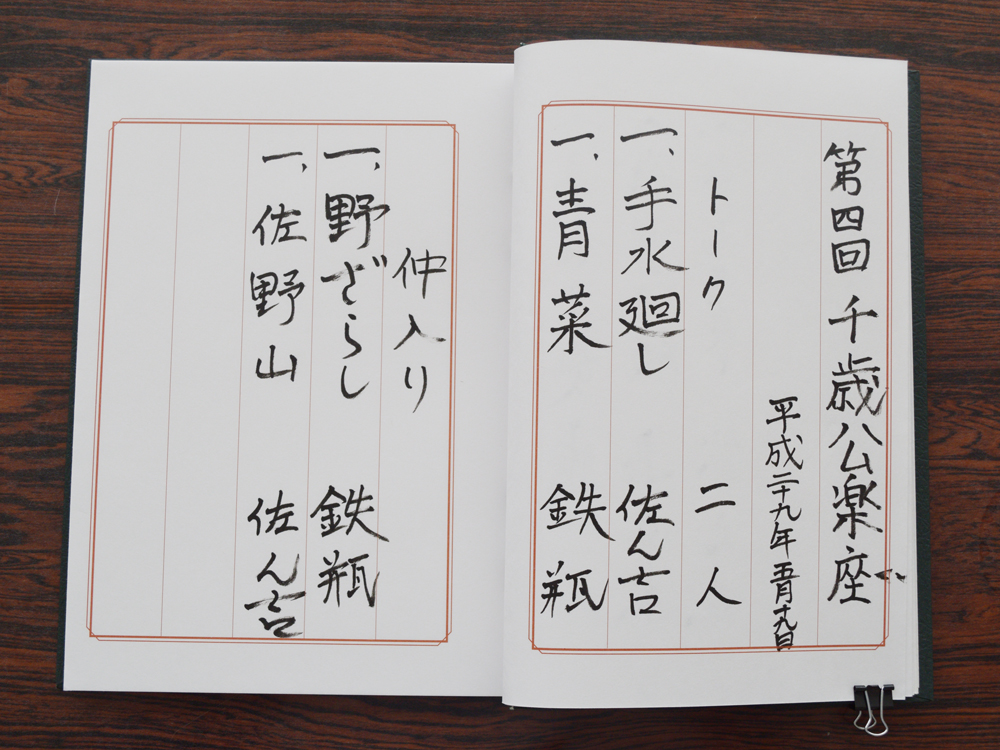 第四回 千歳公楽座
平成二十九年 五月十九日
トーク 二人
一、手水廻し 佐ん吉
一、青菜 鉄瓶
仲入り
一、野ざらし 鉄瓶
一、佐野山 佐ん吉